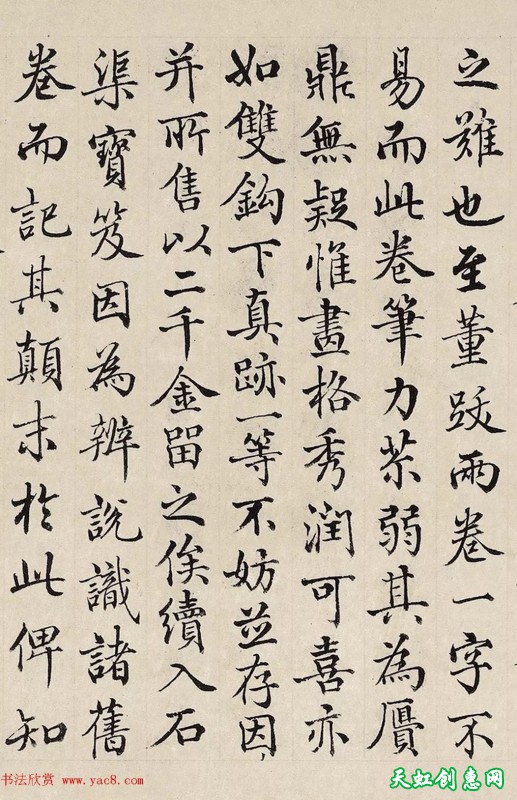 之難也至董跋兩卷一字不
易而此卷筆力苶弱其為贋
鼎無疑惟畫格秀潤可喜亦
如雙鈎下真跡一等不妨並存因
并所售以二千金留之俟續入石
渠寶笈因為辨說識諸舊
卷而記其顛末於此俾知
书法欣赏 www.yac8.com
天虹创惠网